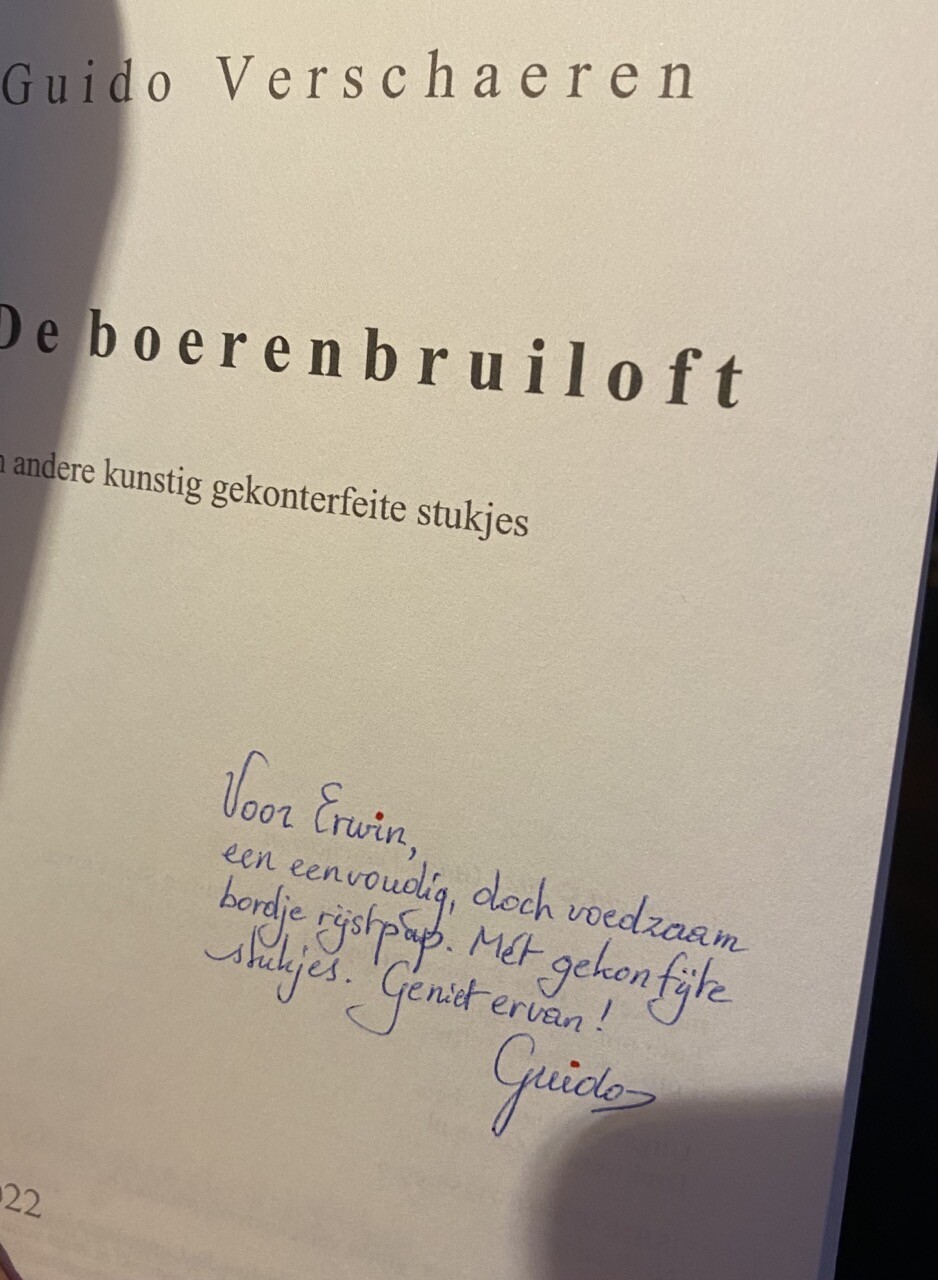 Guido Verschaeren
De boerenbruiloft
andere kunstig gekonterfeite stukjes
Voor Erwin,
een eenvoudig, doch voedzaam
bordje rijstpap. Mét gekonfijte
stukjes. Geniet ervan!
Guido
022